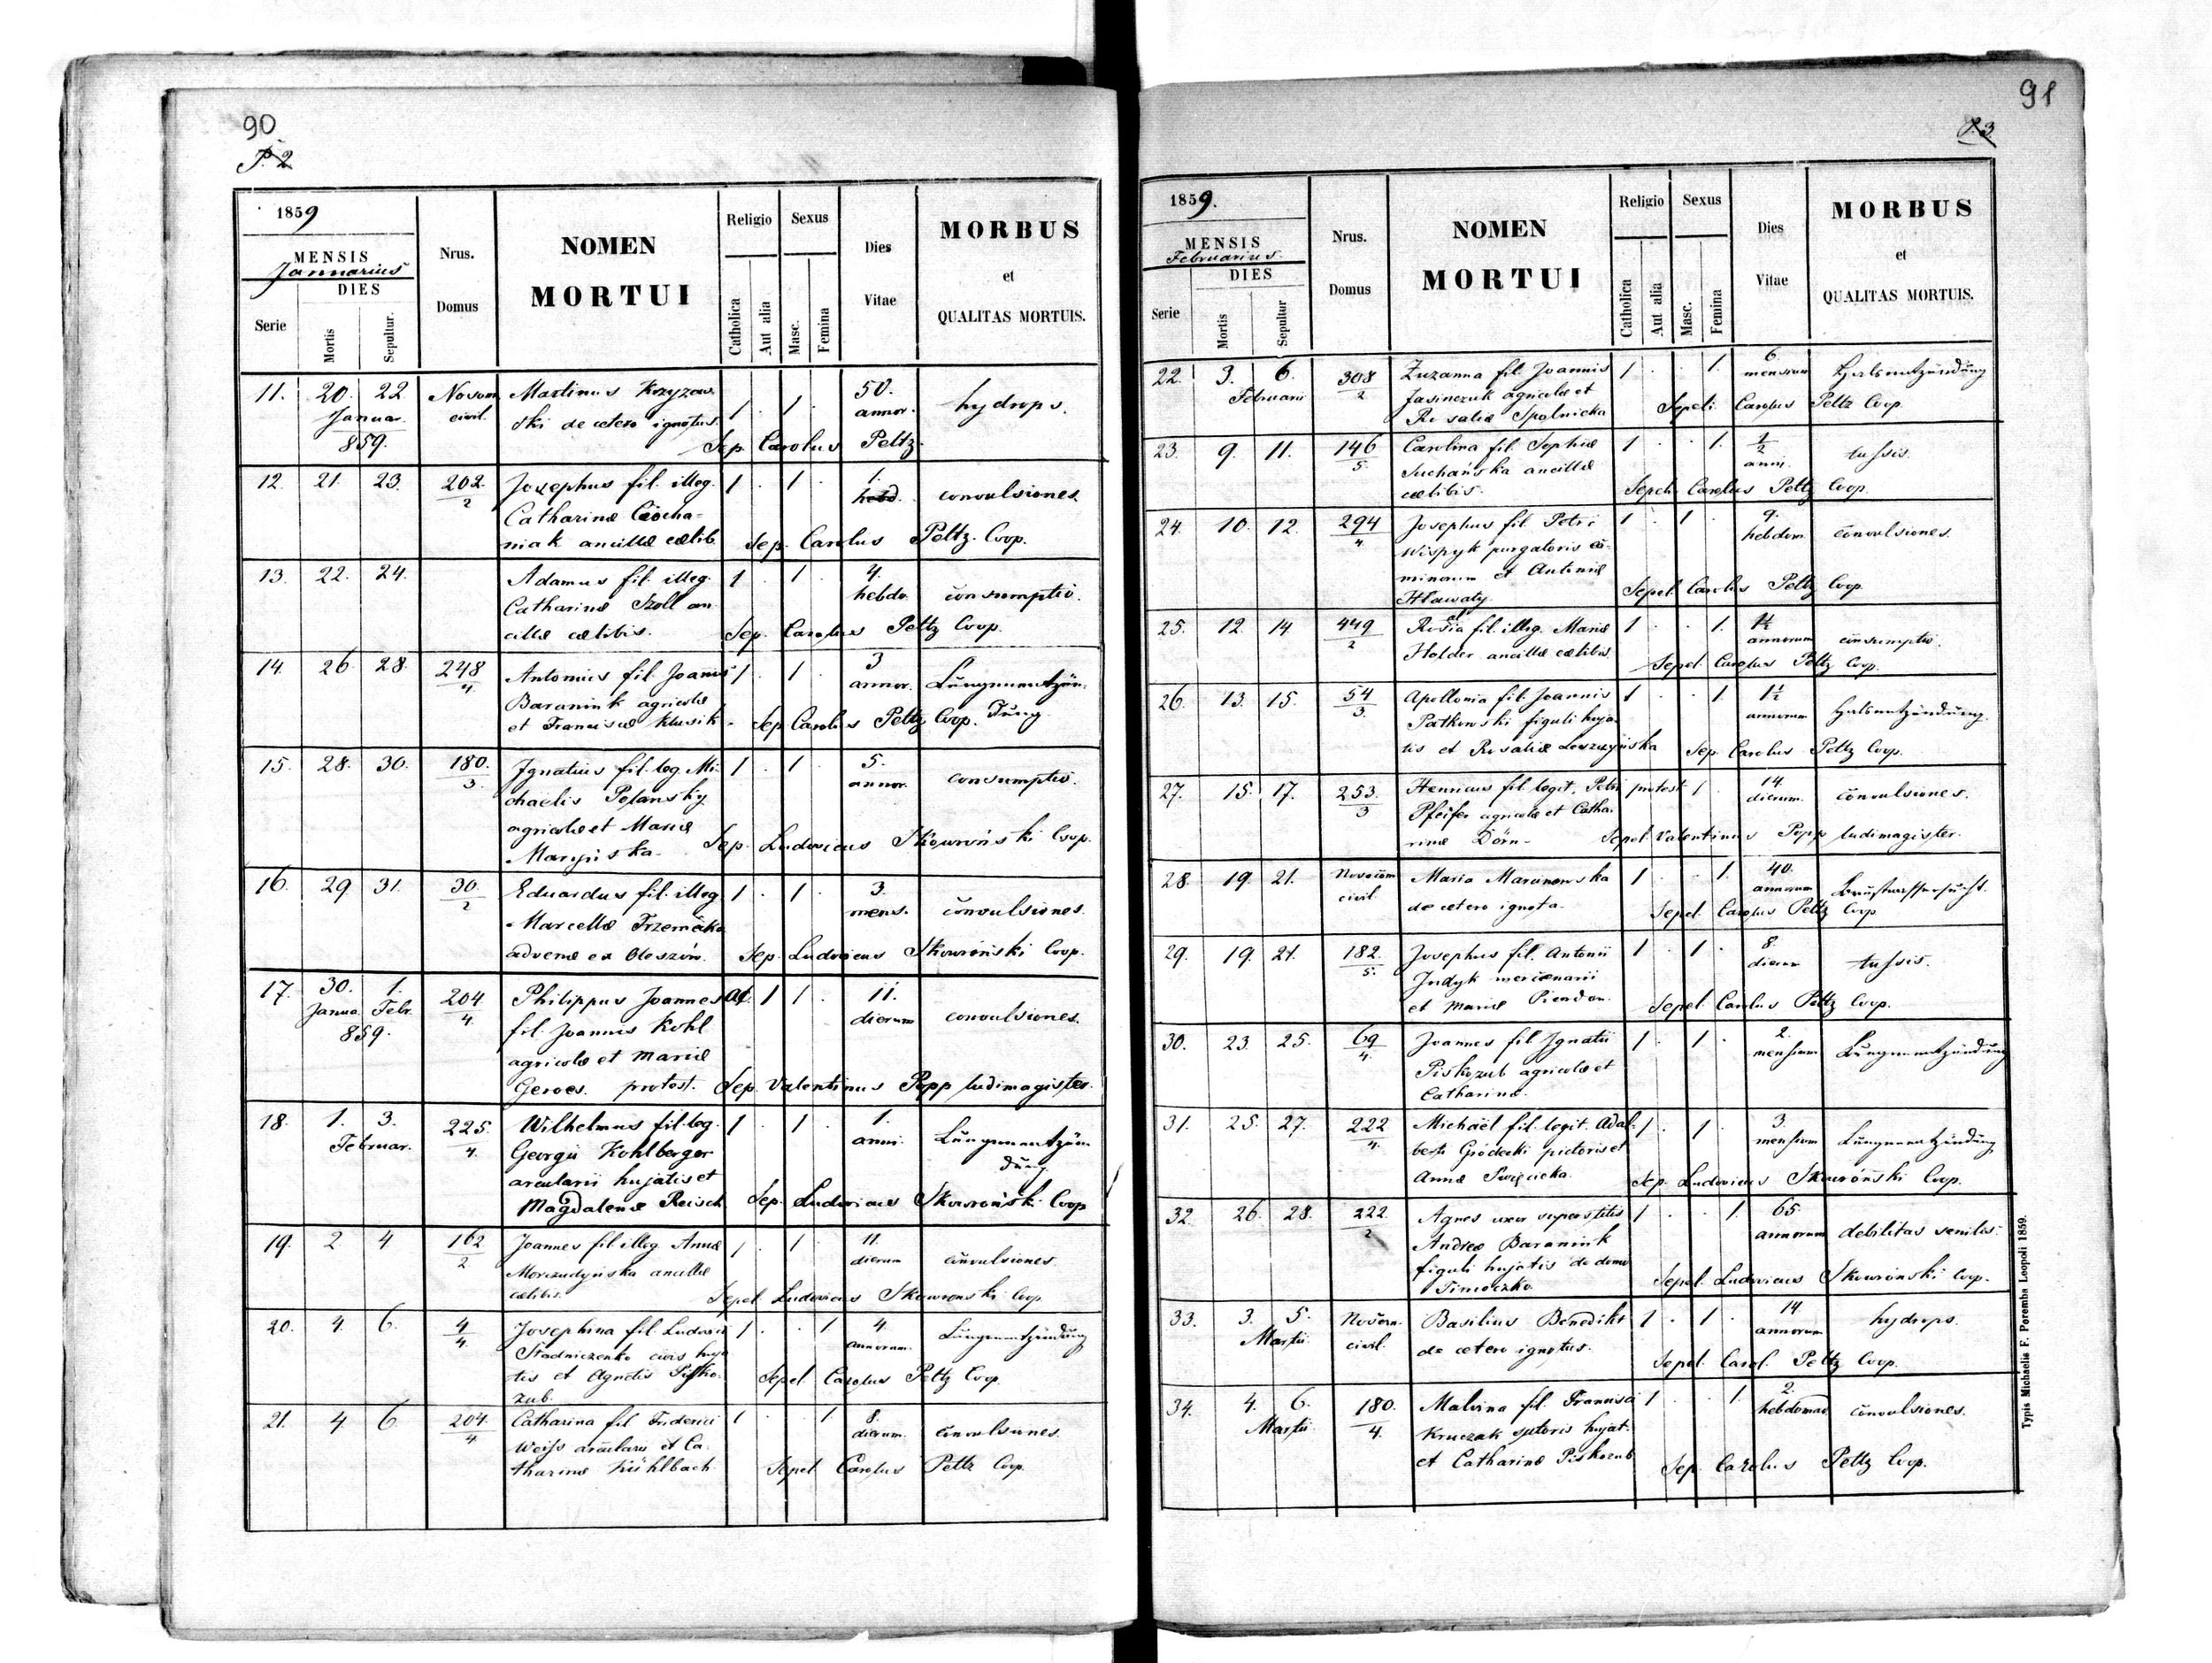 90
P. 2
1859
MENSIS
Januarius
DIES
Serie
Mortis
Sepultur.
Nrus.
Domus
NOMEN
MORTUI
Religio
Catholica
Aut alia
Sexus
Masc.
Femina
Dies
Vitae
MORBUS
et
QUALITAS MORTUIS.
11. 20. 22 Nosocom. Martinus Krzyzow 1 . 1 . 50. hydrops.
Januar. civil. ski de cetero ignotus. annor.
859. Sep. Carolus Peltz.
12. 21. 23. 202/2 Josephus fil. illeg. 1 . 1 . 1. hebd. convulsiones
Catharinæ Ciocha-
niak ancillæ cælib. Sep. Carolus Peltz. Coop.
13. 22. 24. Adamus fil. illeg. 1 . 1 . 4. hebdo. consumptio.
Catharinæ Szoll an
cillæ cælibis. Sep. Carolus Peltz Coop.
14. 26 28. 248/4 Antonius fil. Joannis 1 . 1 3 annor. Lungenentzün-
Baranink agricolæ dung.
et Franciscæ Klusik - Sep. Carolus Peltz Coop.
15. 28. 30. 180./3. Ignatius fil. leg. Mi- 1 . 1 5. annor. consumptio.
chaelis Polansky
agricolæ et Mariæ
Maryńska. Sep. Ludovicus Skowroński Coop.
16. 29 31. 30./2 Eduardus fil. illeg 1 . 1 . 3. mens. convulsiones.
Marcellæ
advenæ ex Sep. Ludovicus Skowroński Coop.
17. 30. 1. 204/4 Philippus Joannes AC. 1 1 . 11. dierum convulsiones.
Janua. Febr. fil. Joannis Kohl
859. agricolæ et Mariæ
Geroes. protest. Sep. Valentinus Popp ludimagister.
18. 1. 3. 225./4. Wilhelmus fil. leg. 1 . 1 . 1. anni. Lungenentzün
Februar. Georgii Kohlberger dung
arcularii hujatis et
Magdalenæ Reisch Sep. Ludovicus Skowrońsk. Coop
19. 2 4 162/2 Joannes fil. illeg. Annæ 1 . 1 . 11. dierum convulsiones
ancillæ
cælibis. Sepel. Ludovicus Skowronski Coop.
20. 4. 6. 4/4 Josephina fil. Ludovici 1 . . 1 4. annorum. Lungenentzündung
Stadniczenko civis huja
tis et Agnetis Pisko- Sepel Carolus Peltz Coop.
zub.
21. 4 6 204./4 Catharina fil. Friderici 1 . . 1 8. dierum. convulsiones.
Weiss arcularii et Ca
tharinæ Kühlbach. Sepel. Carolus Peltz Coop.
91
P. 3.
1859.
MENSIS
Februarius
DIES
Serie
Mortis
Sepultur
Nrus.
Domus
NOMEN
MORTUI
Religio
Catholica
Aut alia
Sexus
Masc.
Femina
Dies
Vitae
MORBUS
et
QUALITAS MORTUIS.
22. 3. 6. 308/2 Zuzanna fil. Joannis 1 . . 1. 6. mensium Halsentzündung
Februarii Jasinczuk agricolæ et
Rosaliæ Spolnicka Sepeli. Carolus Peltz Coop.
23. 9. 11. 146/5. Carolina fil. Sophiæ 1 . . 1. 1/2 anni. tussis.
Suchańska ancillæ
cælibis. Sepeli. Carolus Peltz Coop.
24. 10. 12. 294/4. Josephus fil. Petri 1 . 1 . 9. hebdom. convulsiones.
Wispyk purgatoris ca-
minorum et Antoniæ
Hławaty. Sepel. Carolus Peltz Coop.
25. 12. 14 449/2 fil. illeg. Mariæ 1 . . 1. 1 1/2 annorum consumptio.
Holder ancillæ cælibis. Sepel. Carolus Peltz Coop.
26. 13. 15. 54/3. Apollonia fil. Joannis 1 . . 1. 1 1/2 annorum Halsentzündung.
Patkowski figuli huja-
tis et Rosaliæ Leszczyńska Sep. Carolus Peltz Coop.
27. 15. 17. 253./3 Henricus fil. legit. Petri protest. 1 . 14. dierum. convulsiones.
Pfeifer agricolæ et Catha-
rinæ Dörn - Sepel. Valentinus Popp ludimagister.
28. 19. 21. Nosocom Maria Maranowska 1 . . 1. 40. annorum Brustwassersucht.
civil de cetero ignota. Sepel. Carolus Peltz Coop
29. 19. 21. 182./5. Josephus fil. Antonii 1 . 1 . 8. dierum tussis.
Indyk mercenarii
et Mariæ Sepel. Carolus Peltz Coop.
30. 23. 25. 69/4. Joannes fil. Ignatii 1 . 1 . 2. mensium Lungenentzündung
Piskozub agricolæ et
Catharinæ.
31. 25. 27. 222/4. Michaël fil. legit. Adal- 1 . 1 . 3. mensium Lungenentzündung
berti Gródecki pictoris et
Annæ Święcicka. Sep. Ludovicus Skowroński Coop.
32. 26. 28. 222./2 Agnes uxor superstitis 1 . . 1. 65. annorum debilitas senilis.
Andreæ Baranink
figuli hujatis de domo
Timoczko. Sepel. Ludovicus Skowronski Coop.
33. 3. 5. Nosocom. Basilius Benedikt 1 . 1 . 14 annorum hydrops.
Martii civil. de cetero ignotus. Sepel. Carol. Peltz Coop.
34. 4. 6. 180./4. Malvina fil. Francisci 1 . . 1. 2. hebdomad. convulsiones.
Martii Kruczak sutoris hujat.
et Catharinæ Piskozub Sep. Carolus Peltz Coop.
Typis Michaelis F. Poremba Leopoli 1859.